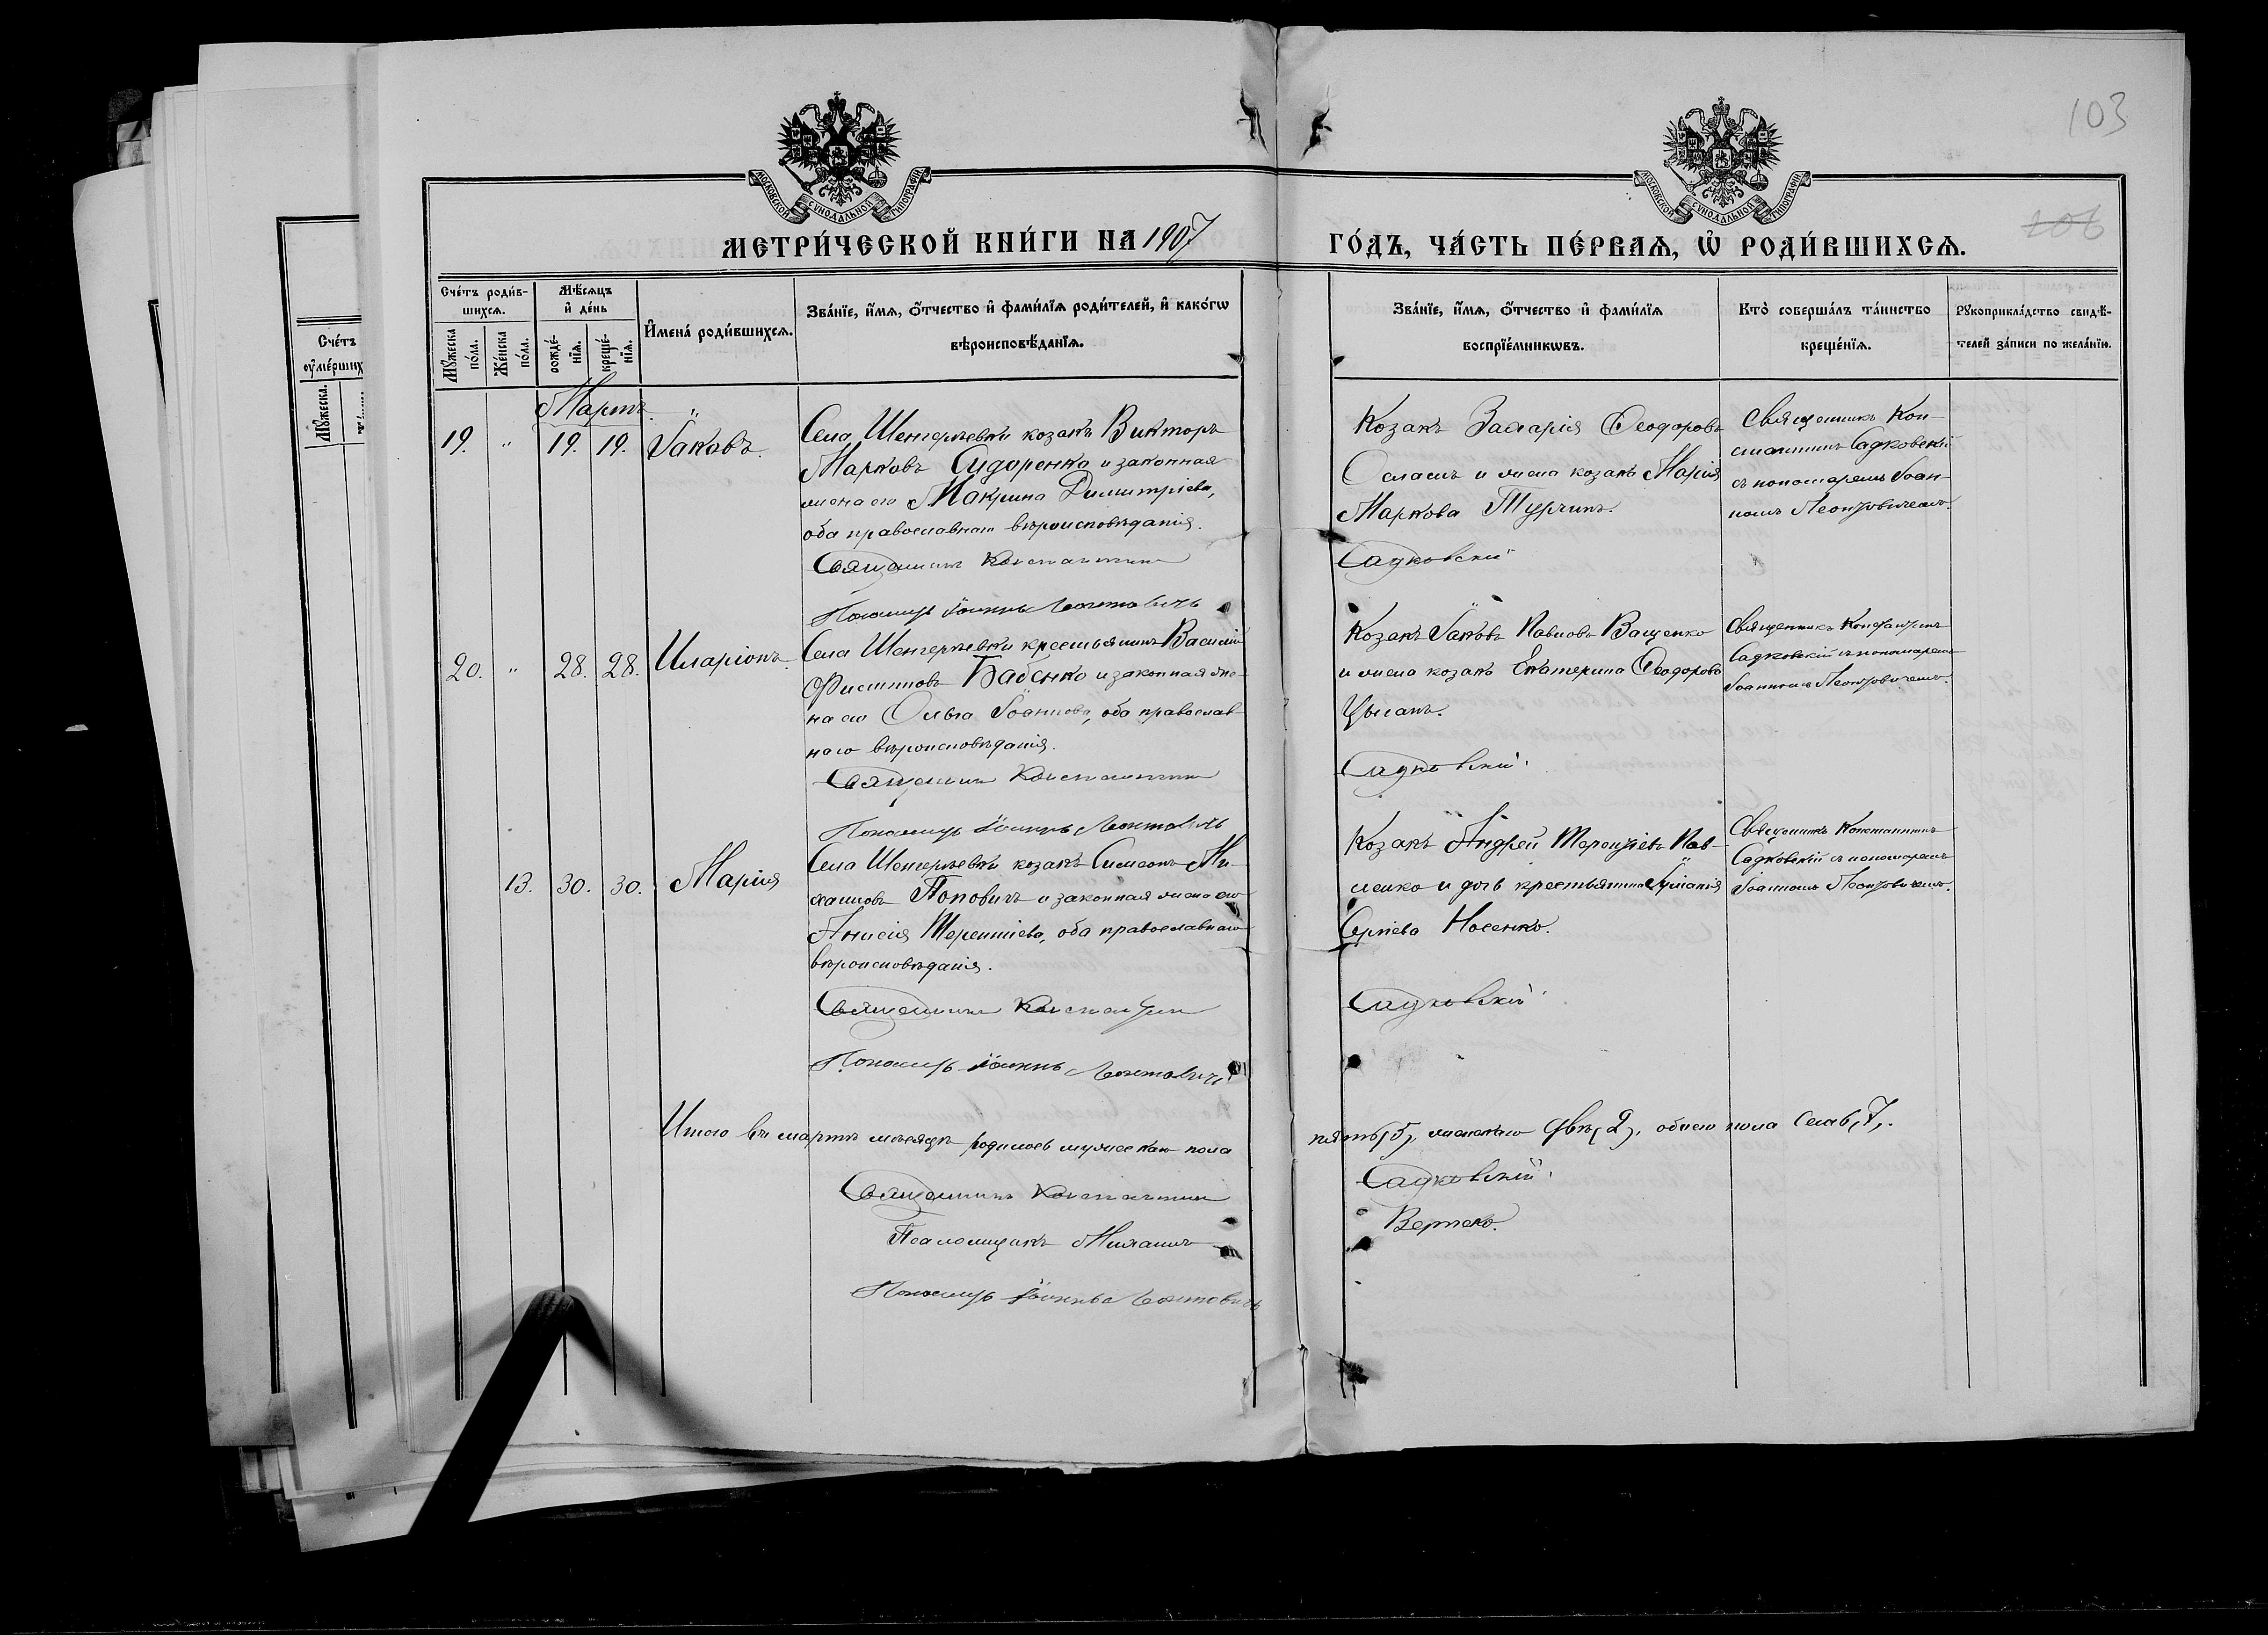 103
106
МОСКОВСКОЙ СѴНОДАЛЬНОЙ ТИПОГРАФІИ
МОСКОВСКОЙ СѴНОДАЛЬНОЙ ТИПОГРАФІИ
МЕТРИ́ЧЕСКОЙ КНИ́ГИ НА 1907 ГО́ДЪ, ЧА́СТЬ ПЕ́РВАѦ, Ѽ РОДИ́ВШИХСѦ.
Сче́тъ роди́в-
шихсѧ.
Мꙋ́жеска по́ла.
Же́нска по́ла.
Мѣ́сѧцъ
и҆ де́нь
рожде́-
нїѧ.
креще́-
нїѧ.
И҆мена́ роди́вшихсѧ.
Зва́нїе, и҆́мѧ, ѻ҆́тчество и҆ фами́лїѧ роди́телей, и҆ како́гѡ
вѣроисповѣ́данїѧ.
Зва́нїе, и҆́мѧ, ѻ҆́тчество и҆ фами́лїѧ
воспрїе́мникѡвъ.
Кто̀ соверша́лъ та́инство
креще́нїѧ.
Рꙋкоприкла́дство свидѣ́-
телей за́писи по жела́нїю.
Сче́тъ
ᲂу҆ме́рших
Мꙋ́жеска.
Мартъ
19. " 19. 19. Іаковъ.
Села Шенгерѣевки козакъ Викторъ
Марковъ Сидоренко и законная
жена его Макрина Димитріева,
оба православнаго вѣроисповѣданія.
Священникъ Константинъ Садковскій
Пономарь Іоаннъ Леонтовичъ
Козакъ Захарія Ѳеодоровъ
и жена козака Марія
Маркова Турчинъ.
Священникъ Кон-
стантинъ Садковскій
съ пономаремъ Іоан-
номъ Леонтовичемъ.
20. " 28. 28. Иларіонъ.
Села Шенгерѣевки крестьянинъ Василій
Филипповъ Бабенко и законная же-
на его Ольга Іоаннова, оба православ-
наго вѣроисповѣданія.
Священникъ Константинъ Садковскій.
Пономарь Іоаннъ Леонтовичъ
Козакъ Іаковъ Павловъ Ващенко
и жена козака Екатерина Ѳеодорова
Цыганъ.
Священникъ Константинъ
Садковскій съ пономаремъ
Іоанномъ Леонтовичемъ.
13. 30. 30. Марія
Села Шенгерѣевки козакъ Симеонъ Ми-
хаиловъ Поповичъ и законная жена его
Анисія Терентіева, оба православнаго
вѣроисповѣданія.
Священникъ Константинъ Садковскій.
Пономарь Іоаннъ Леонтовичъ
Козакъ Андрей Терентіевъ Пав-
ленко и дочь крестьянина
Сергіева Носенко.
Священникъ Константинъ
Садковскій съ пономаремъ
Іоанномъ Леонтовичемъ.
Итого въ мартѣ мѣсяцѣ родилось мужескаго пола пять (5), женскаго двѣ (2), обоего пола семь (7).
Священникъ Константинъ Садковскій.
Псаломщикъ Михаилъ
Пономарь Іоаннъ Леонтовичъ